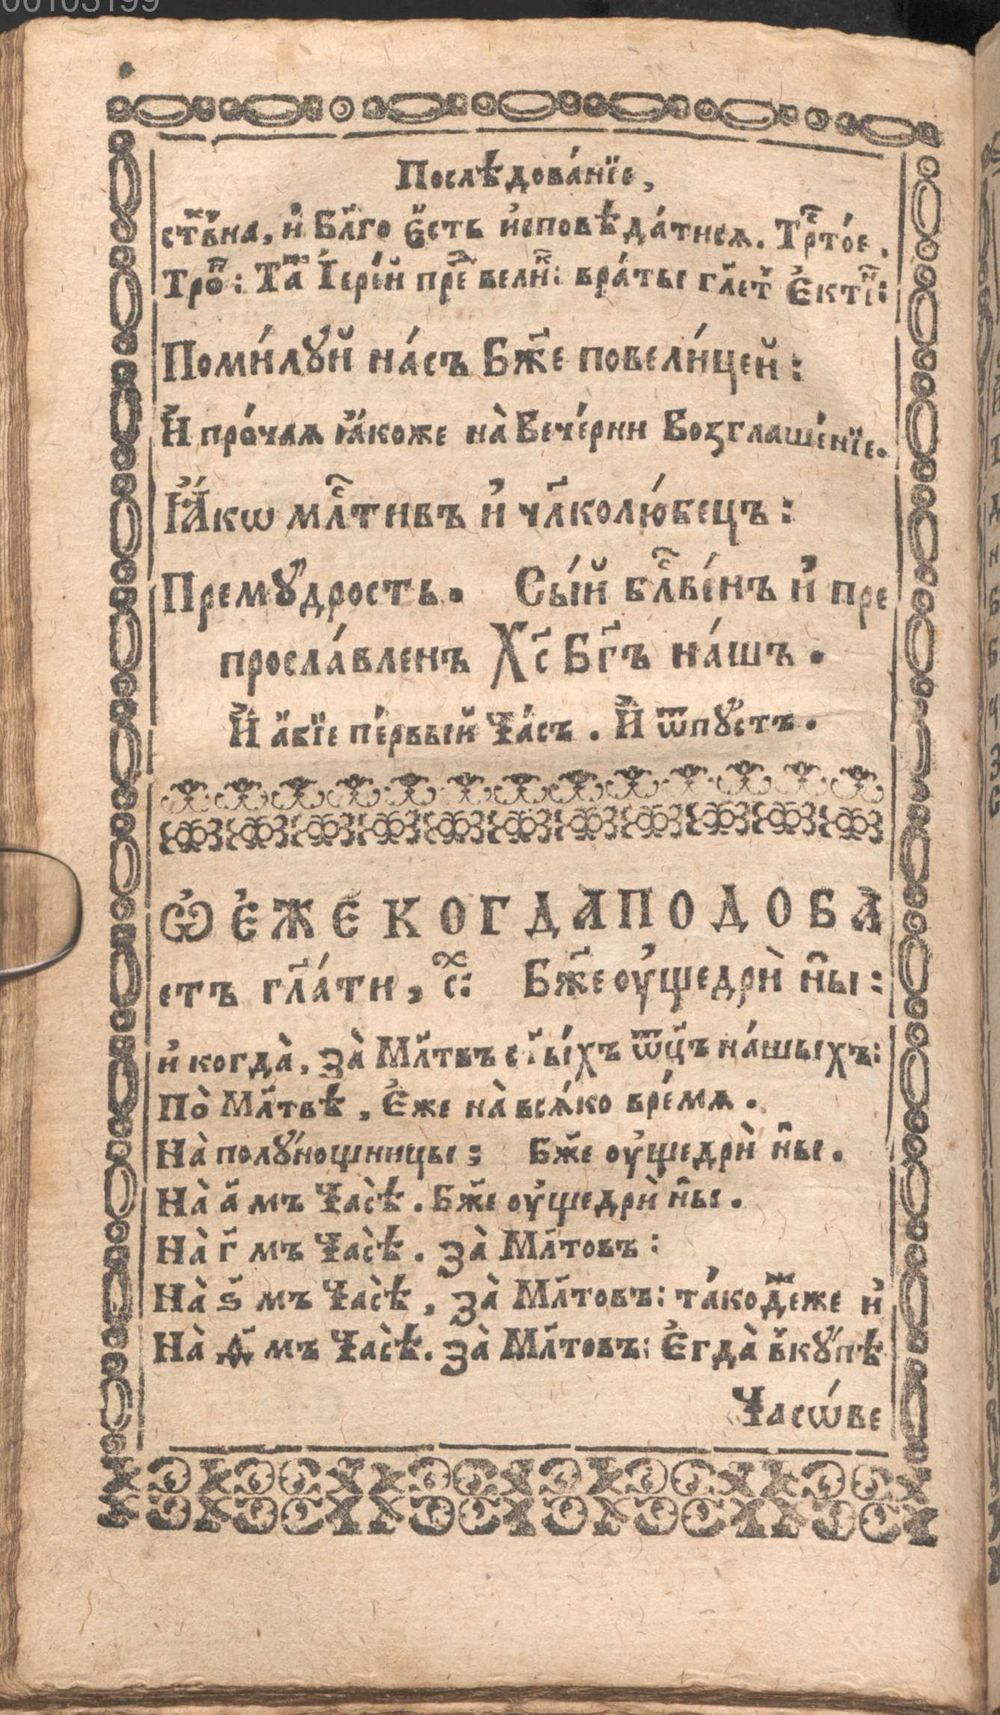 00103199
Послѣдова́нїе,
ст҃ве́на, и҆ Бл҃го є҆́сть и҆сповѣда́тися. Тр҃то́е.
Трⷪ҇п: Таⷤ Ї҆ере́й преⷣ вели́ⷦ: вра́ты гл҃етъ Є҆кті̀ⷩ:
Поми́лꙋй на́съ Бж҃е повели́цей:
И҆ про́чая ꙗ҆́коже на̀ Вече́рни Возглаше́нїе.
Ꙗ҆́кѡ мл҃тивъ и҆ чл҃колю́бецъ:
Премꙋ́дрость. Сы́й бл҃ве́нъ и҆ пре
просла́вленъ Хс҃ Бг҃ъ на́шъ.
И҆ а҆́бїе пе́рвый Ча́съ. И҆ ѿпꙋ́стъ.
Ѽ Є҆́ЖЕ КОГДАПОДОБА
етъ гл҃а́ти, с҃: Бж҃е оу҆щедрѝ ны҃:
и҆ когда̀, за̀ Мл҃твъ ст҃ы́хъ ѿц҃ъ на́шыхъ:
По̀ Мл҃твѣ, Є҆́же на̀ вся́ко вре́мѧ.
На̀ полꙋ́нощницы; Бж҃е оу҆щедрѝ ны҃.
На̀ а҃ мъ Часѣ̀. Бж҃е оу҆щедрѝ ны҃.
На̀ г҃ мъ Часѣ̀. за̀ Мл҃товъ:
На̀ ѕ҃ мъ Часѣ̀, за̀ Мл҃товъ: та́коⷤдеже и҆
На̀ ѳ҃ мъ Часѣ̀. за̀ Мл҃товъ: Є҆гда̀ вкꙋ́пѣ
Часѡ́ве